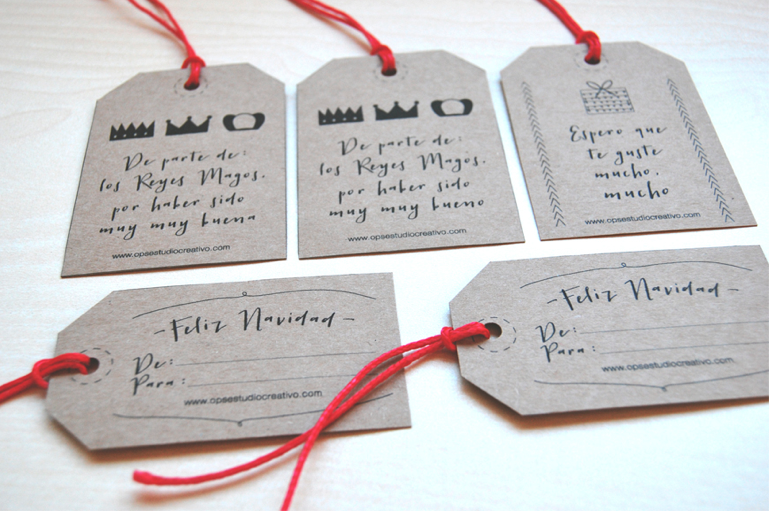 De parte de:
los Reyes Magos.
por haber sido
muy muy buena
www.opsestudiocreativo.com
De parte de:
los Reyes Magos.
por haber sido
muy muy bueno
www.opsestudiocreativo.com
Espero que
te guste
mucho,
mucho
www.opsestudiocreativo.com
-Feliz Navidad-
De:
Para:
www.opsestudiocreativo.com
-Feliz Navidad-
De:
Para:
www.opsestudiocreativo.com